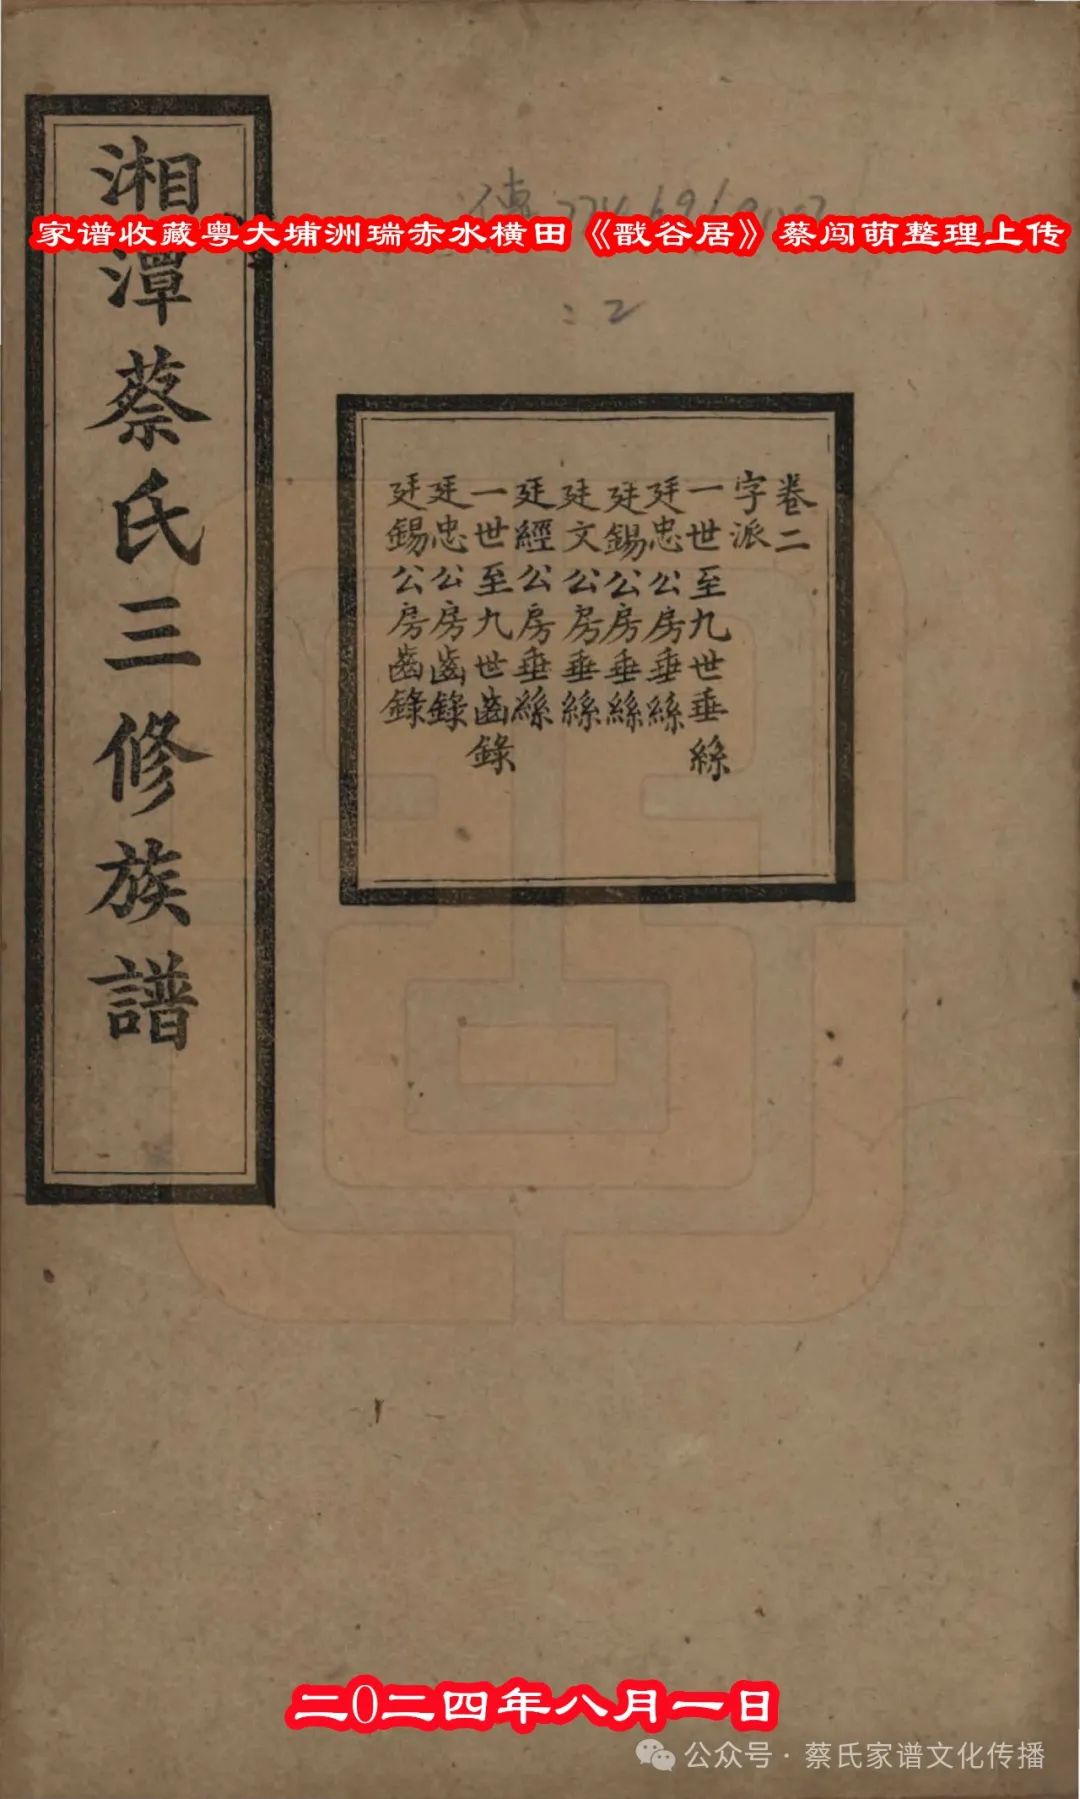 湘潭蔡氏三修族譜
家谱收藏粤大埔洲瑞赤水横田《戬谷居》蔡闯萌整理上传
:2
卷二
字派
一世至九世垂絲
廷忠公房垂絲
廷錫公房垂絲
廷文公房垂絲
廷經公房垂絲
一世至九世齒錄
廷忠公房齒錄
廷錫公房齒錄
二0二四年八月一日
公众号·蔡氏家谱文化传播